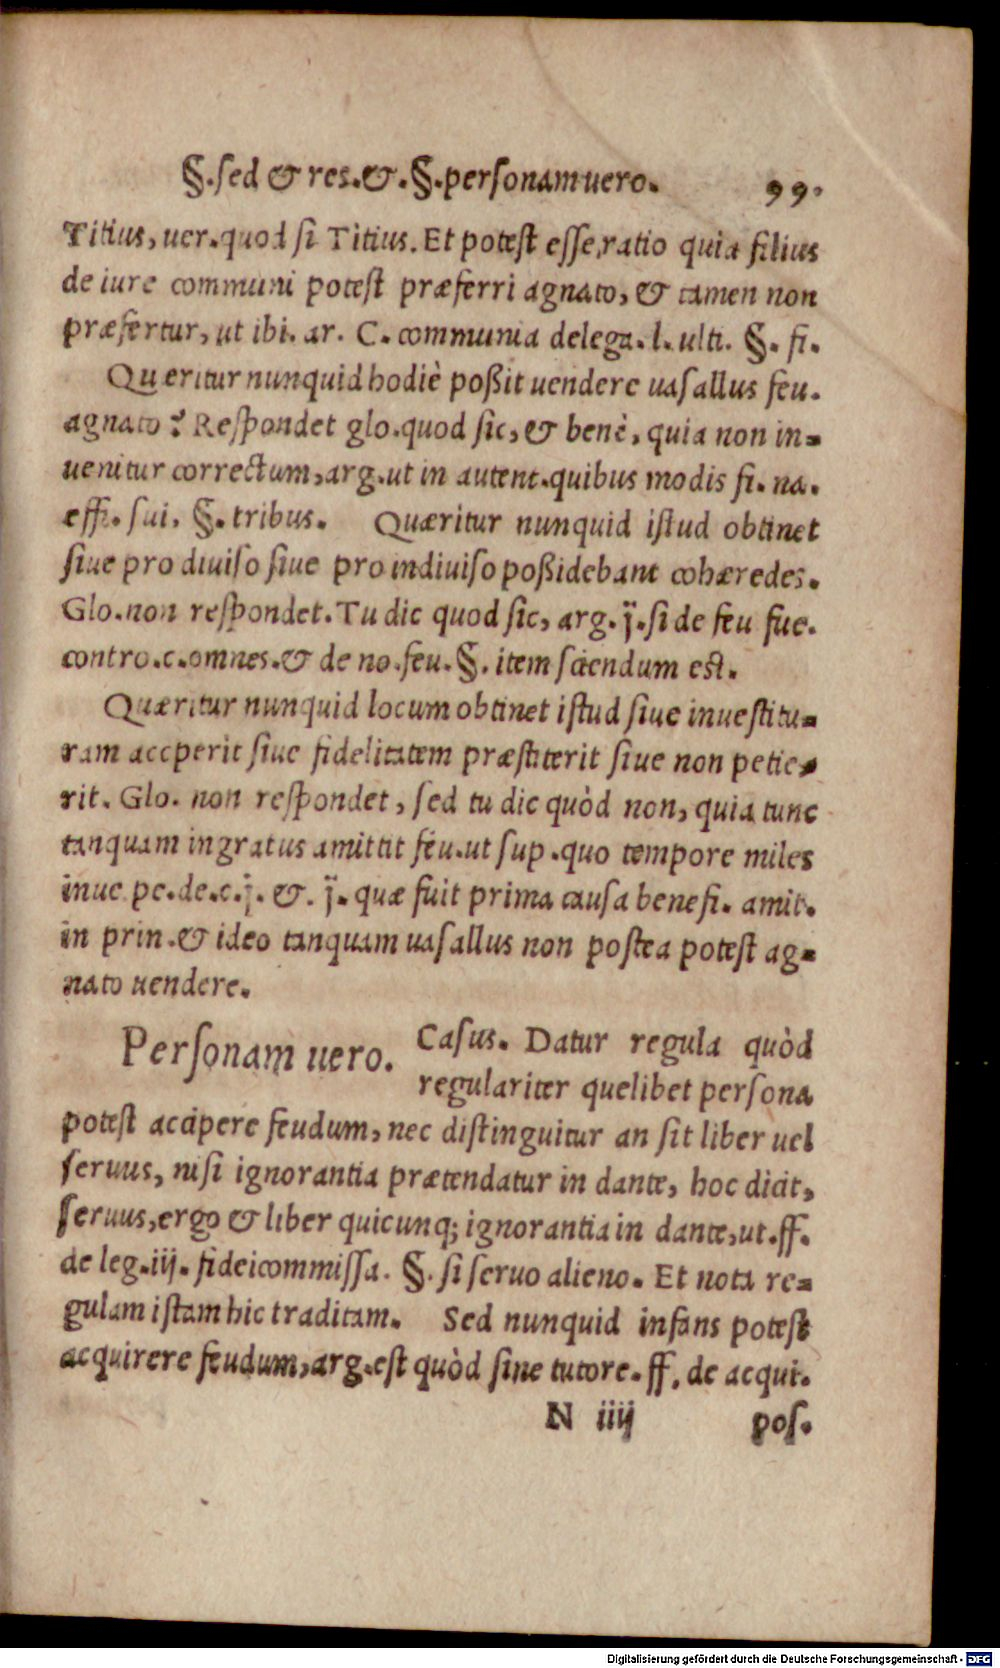 §.sed & res.&.§.personam uero. 99.
Titius, uer.quod si Titius. Et potest esse,ratio quia filius
de iure communi potest præferri agnato, & tamen non
præfertur, ut ibi. ar. C. communia delega. l. ulti. §. fi.
Queritur nunquid hodiè poßit uendere uasallus feu.
agnato? Respondet glo.quod sic, & benè, quia non in=
uenitur correctum, arg.ut in autent.quibus modis fi. na.
effi. sui. §. tribus. Quæritur nunquid istud obtinet
siue pro diuiso siue pro indiuiso poßidebant cohæredes.
Glo.non respondet. Tu dic quod sic, arg. j̈. si de feu fue.
contro.c.omnes.& de no.feu.§. item sciendum est.
Quæritur nunquid locum obtinet istud siue inuestitu=
ram acceperit siue fidelitatem præstiterit siue non petie=
rit. Glo. non respondet, sed tu dic quòd non, quia tunc
tanquam ingratus amittit feu.ut sup.quo tempore miles
inue pe.de.c.j. &. j̈. quæ fuit prima causa benefi. amit.
in prin.& ideo tanquam uasallus non postea potest ag=
nato uendere.
Personam uero. Casus. Datur regula quòd
regulariter quelibet persona
potest accipere feudum, nec distinguitur an sit liber uel
seruus, nisi ignorantia prætendatur in dante, hoc dicit,
seruus,ergo & liber quicunq; ignorantia in dante,ut.ff.
de leg.iij. fideicommissa. §. si seruo alieno. Et nota re=
gulam istam hic traditam. Sed nunquid infans potest
acquirere feudum, arg.est quòd sine tutore.ff. de acqui.
N iiij pos.
Digitalisierung gefördert durch die Deutsche Forschungsgemeinschaft - DFG